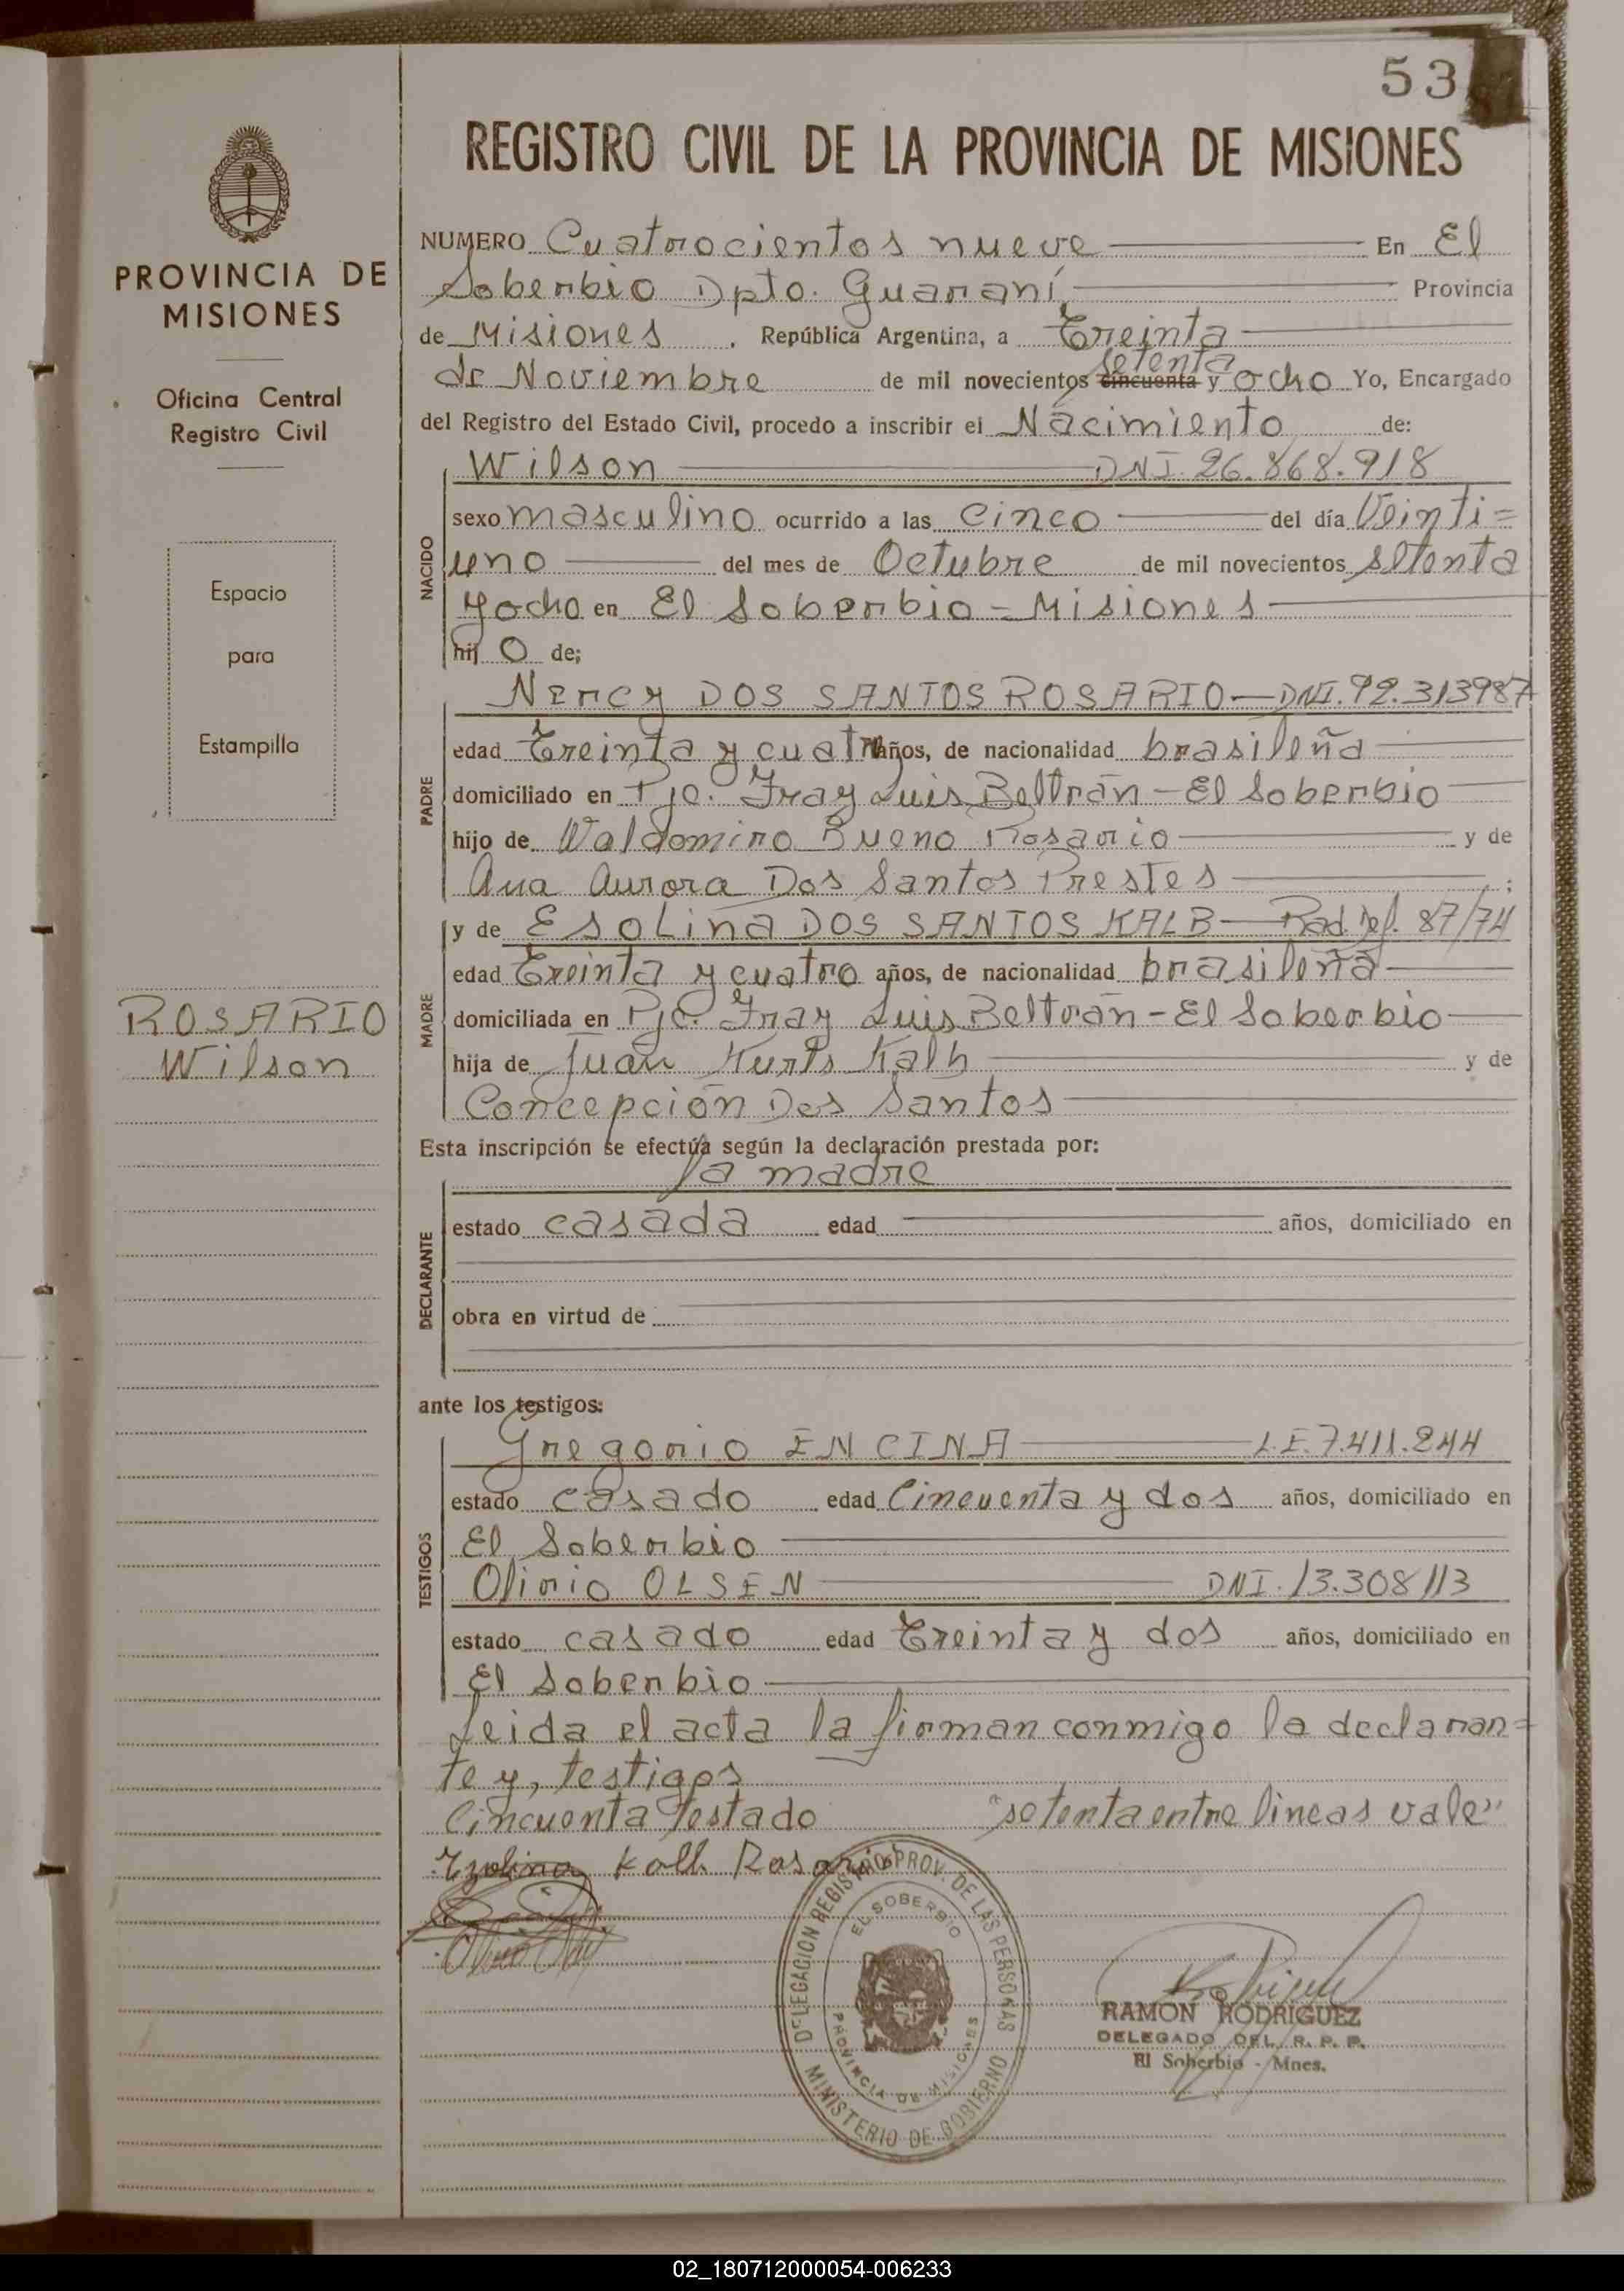 53
REGISTRO CIVIL DE LA PROVINCIA DE MISIONES
PROVINCIA DE
MISIONES
Oficina Central
Registro Civil
Espacio
para
Estampilla
ROSARIO
Wilson
NUMERO Cuatrocientos nueve En El
Soberbio Dpto. Guaraní, Provincia
de Misiones . República Argentina, a Treinta
setenta
de Noviembre de mil novecientos cincuenta y ocho Yo, Encargado
del Registro del Estado Civil, procedo a inscribir el Nacimiento de:
NACIDO
Wilson DNI. 26.868.918
sexo masculino ocurrido a las cinco del día Veinti=
uno del mes de Octubre de mil novecientos setenta
y ocho en El Soberbio - Misiones
hij o de;
PADRE
Nercy DOS SANTOS ROSARIO - DNI. 92.313987
edad Treinta y cuatro años, de nacionalidad brasileña
domiciliado en Pje. Fray Luis Beltrán - El Soberbio
hijo de Waldomiro Bueno Rosario y de
Ana Aurora Dos Santos Prestes ;
MADRE
y de Esolina DOS SANTOS KALB - Rad. Def. 87/74
edad Treinta y cuatro años, de nacionalidad brasileña
domiciliada en Pje. Fray Luis Beltrán - El Soberbio
hija de Juan Kurts Kalb y de
Concepción Dos Santos
Esta inscripción se efectúa según la declaración prestada por:
DECLARANTE
la madre
estado casada edad años, domiciliado en
obra en virtud de
ante los testigos:
TESTIGOS
Gregorio ENCINA L.E. 7.411.244
estado casado edad Cincuenta y dos años, domiciliado en
El Soberbio
Olirio OLSEN DNI. 13.308113
estado casado edad Treinta y dos años, domiciliado en
El Soberbio
Leida el acta la firman conmigo la declaran=
te y, testigos
Cincuenta testado "setenta entre lineas vale"
Ezolina Kalb Rosario
DELEGACION REGISTRO PROV. DE LAS PERSONAS
EL SOBERBIO
PROVINCIA DE MISIONES
MINISTERIO DE GOBIERNO
RAMON RODRIGUEZ
DELEGADO DEL R. P. P.
El Soberbio - Mnes.
02_180712000054-006233